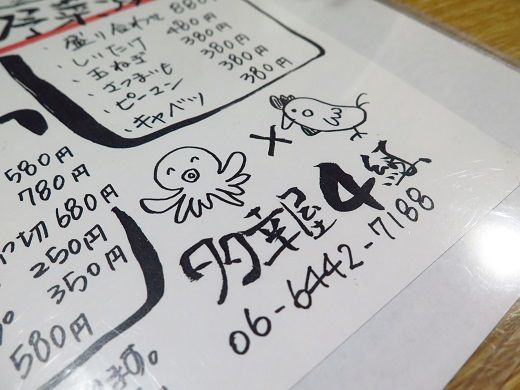 ・盛り合わせ 880円
・しいたけ 480円
・玉ねぎ 380円
・さつまいも 380円
・ピーマン 380円
・キャベツ 380円
580円
780円
つ切 680円
250円
350円
580円
ます。
×
多幸屋4組
06-6442-7188